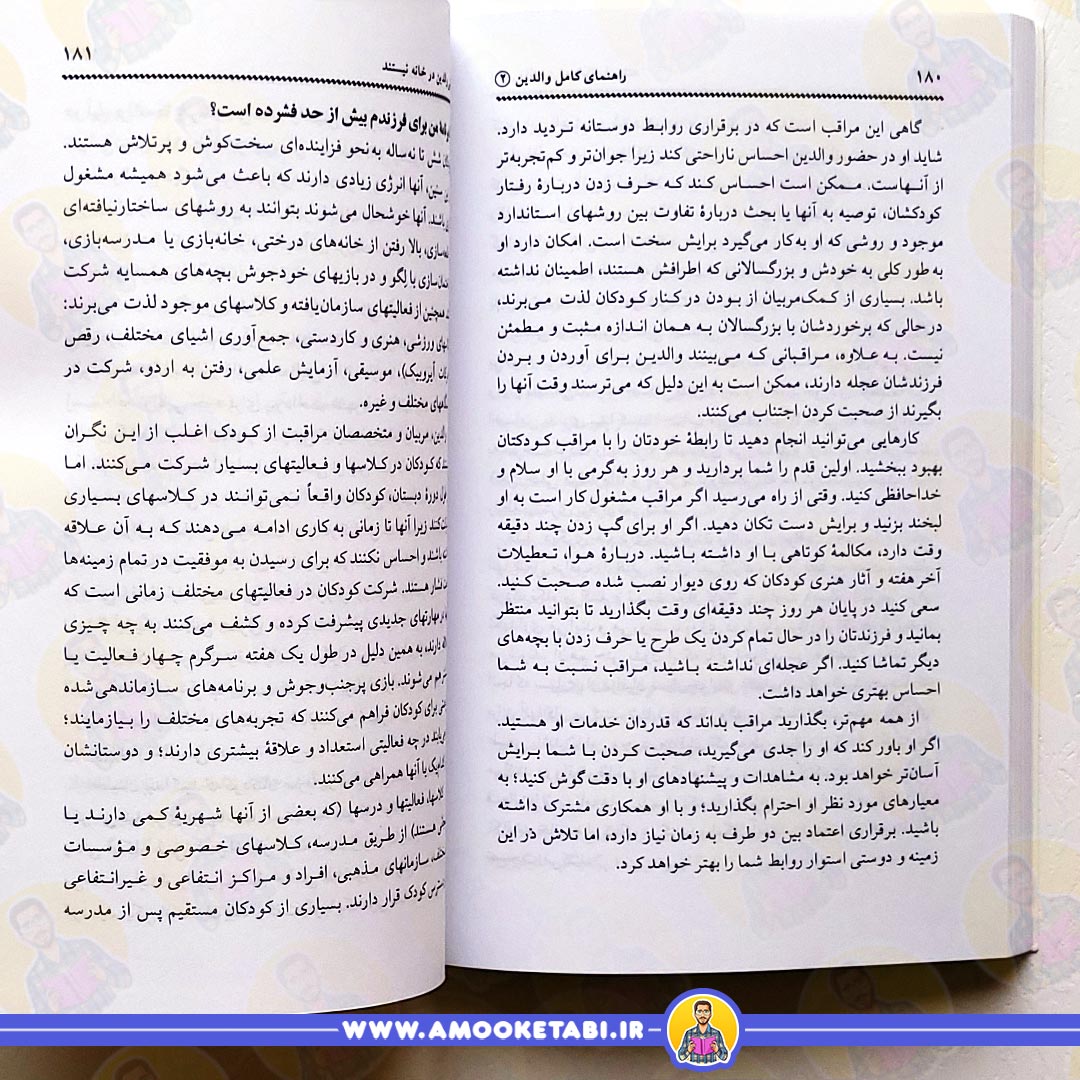 ۱۸۰ راهنمای کامل والدین ۲
گاهی این مراقب است که در برقراری روابط دوستانه تردید دارد.
شاید او در حضور والدین احساس ناراحتی کند زیرا جوان‌تر و کم‌تجربه‌تر
از آنهاست. ممکن است احساس کند که حرف زدن دربارهٔ رفتار
کودکشان، توصیه به آنها یا بحث دربارهٔ تفاوت بین روشهای استاندارد
موجود و روشی که او به‌کار می‌گیرد برایش سخت است. امکان دارد او
به‌طور کلی به خودش و بزرگسالانی که اطرافش هستند، اطمینان نداشته
باشد. بسیاری از کمک‌مربیان از بودن در کنار کودکان لذت می‌برند،
در حالی که برخوردشان با بزرگسالان به همان اندازه مثبت و مطمئن
نیست. به علاوه، مراقبانی که می‌بینند والدین برای آوردن و بردن
فرزندشان عجله دارند، ممکن است به این دلیل که می‌ترسند وقت آنها را
بگیرند از صحبت کردن اجتناب می‌کنند.
کارهایی می‌توانید انجام دهید تا رابطهٔ خودتان را با مراقب کودکتان
بهبود ببخشید. اولین قدم را شما بردارید و هر روز به‌گرمی با او سلام و
خداحافظی کنید. وقتی از راه می‌رسید اگر مراقب مشغول کار است به او
لبخند بزنید و برایش دست تکان دهید. اگر او برای گپ زدن چند دقیقه
وقت دارد، مکالمهٔ کوتاهی با او داشته باشید. دربارهٔ هوا، تعطیلات
آخر هفته و آثار هنری کودکان که روی دیوار نصب شده صحبت کنید.
سعی کنید در پایان هر روز چند دقیقه‌ای وقت بگذارید تا بتوانید منتظر
بمانید و فرزندتان را در حال تمام کردن یک طرح یا حرف زدن با بچه‌های
دیگر تماشا کنید. اگر عجله‌ای نداشته باشید، مراقب نسبت به شما
احساس بهتری خواهد داشت.
از همه مهم‌تر، بگذارید مراقب بداند که قدردان خدمات او هستید.
اگر او باور کند که او را جدی می‌گیرید، صحبت کردن با شما برایش
آسان‌تر خواهد بود. به مشاهدات و پیشنهادهای او با دقت گوش کنید؛ به
معیارهای مورد نظر او احترام بگذارید؛ و با او همکاری مشترک داشته
باشید. برقراری اعتماد بین دو طرف به زمان نیاز دارد، اما تلاش در این
زمینه و دوستی استوار روابط شما را بهتر خواهد کرد.
والدین در خانه نیستند ۱۸۱
من برای فرزندم بیش از حد فشرده است؟
شش تا نه‌ساله به‌نحو فزاینده‌ای سخت‌کوش و پرتلاش هستند.
سنین، آنها انرژی زیادی دارند که باعث می‌شود همیشه مشغول
باشند. آنها خوشحال می‌شوند بتوانند به روشهای ساختارنیافته‌ای
بالا رفتن از خانه‌های درختی، خانه‌بازی یا مدرسه‌بازی،
با لگو و در بازیهای خودجوش بچه‌های همسایه شرکت
همچنین از فعالیتهای سازمان‌یافته و کلاسهای موجود لذت می‌برند:
ورزشی، هنری و کاردستی، جمع‌آوری اشیای مختلف، رقص
آیروبیک)، موسیقی، آزمایش علمی، رفتن به اردو، شرکت در
مختلف و غیره.
والدین، مربیان و متخصصان مراقبت از کودک اغلب از این نگران
که کودکان در کلاسها و فعالیتهای بسیار شرکت می‌کنند. اما
دورهٔ دبستان، کودکان واقعاً نمی‌توانند در کلاسهای بسیاری
کنند زیرا آنها تا زمانی به کاری ادامه می‌دهند که به آن علاقه
باشند و احساس نکنند که برای رسیدن به موفقیت در تمام زمینه‌ها
فشار هستند. شرکت کودکان در فعالیتهای مختلف زمانی است که
مهارتهای جدیدی پیشرفت کرده و کشف می‌کنند به چه چیزی
دارند، به همین دلیل در طول یک هفته سرگرم چهار فعالیت یا
می‌شوند. بازی پرجنب‌وجوش و برنامه‌های سازماندهی‌شده
برای کودکان فراهم می‌کنند که تجربه‌های مختلف را بیازمایند؛
در چه فعالیتی استعداد و علاقهٔ بیشتری دارند؛ و دوستانشان
با آنها همراهی می‌کنند.
کلاسها، فعالیتها و درسها (که بعضی از آنها شهریهٔ کمی دارند یا
هستند) از طریق مدرسه، کلاسهای خصوصی و مؤسسات
سازمانهای مذهبی، افراد و مراکز انتفاعی و غیرانتفاعی
کودک قرار دارند. بسیاری از کودکان مستقیم پس از مدرسه
WWW.AMOOKETABI.IR